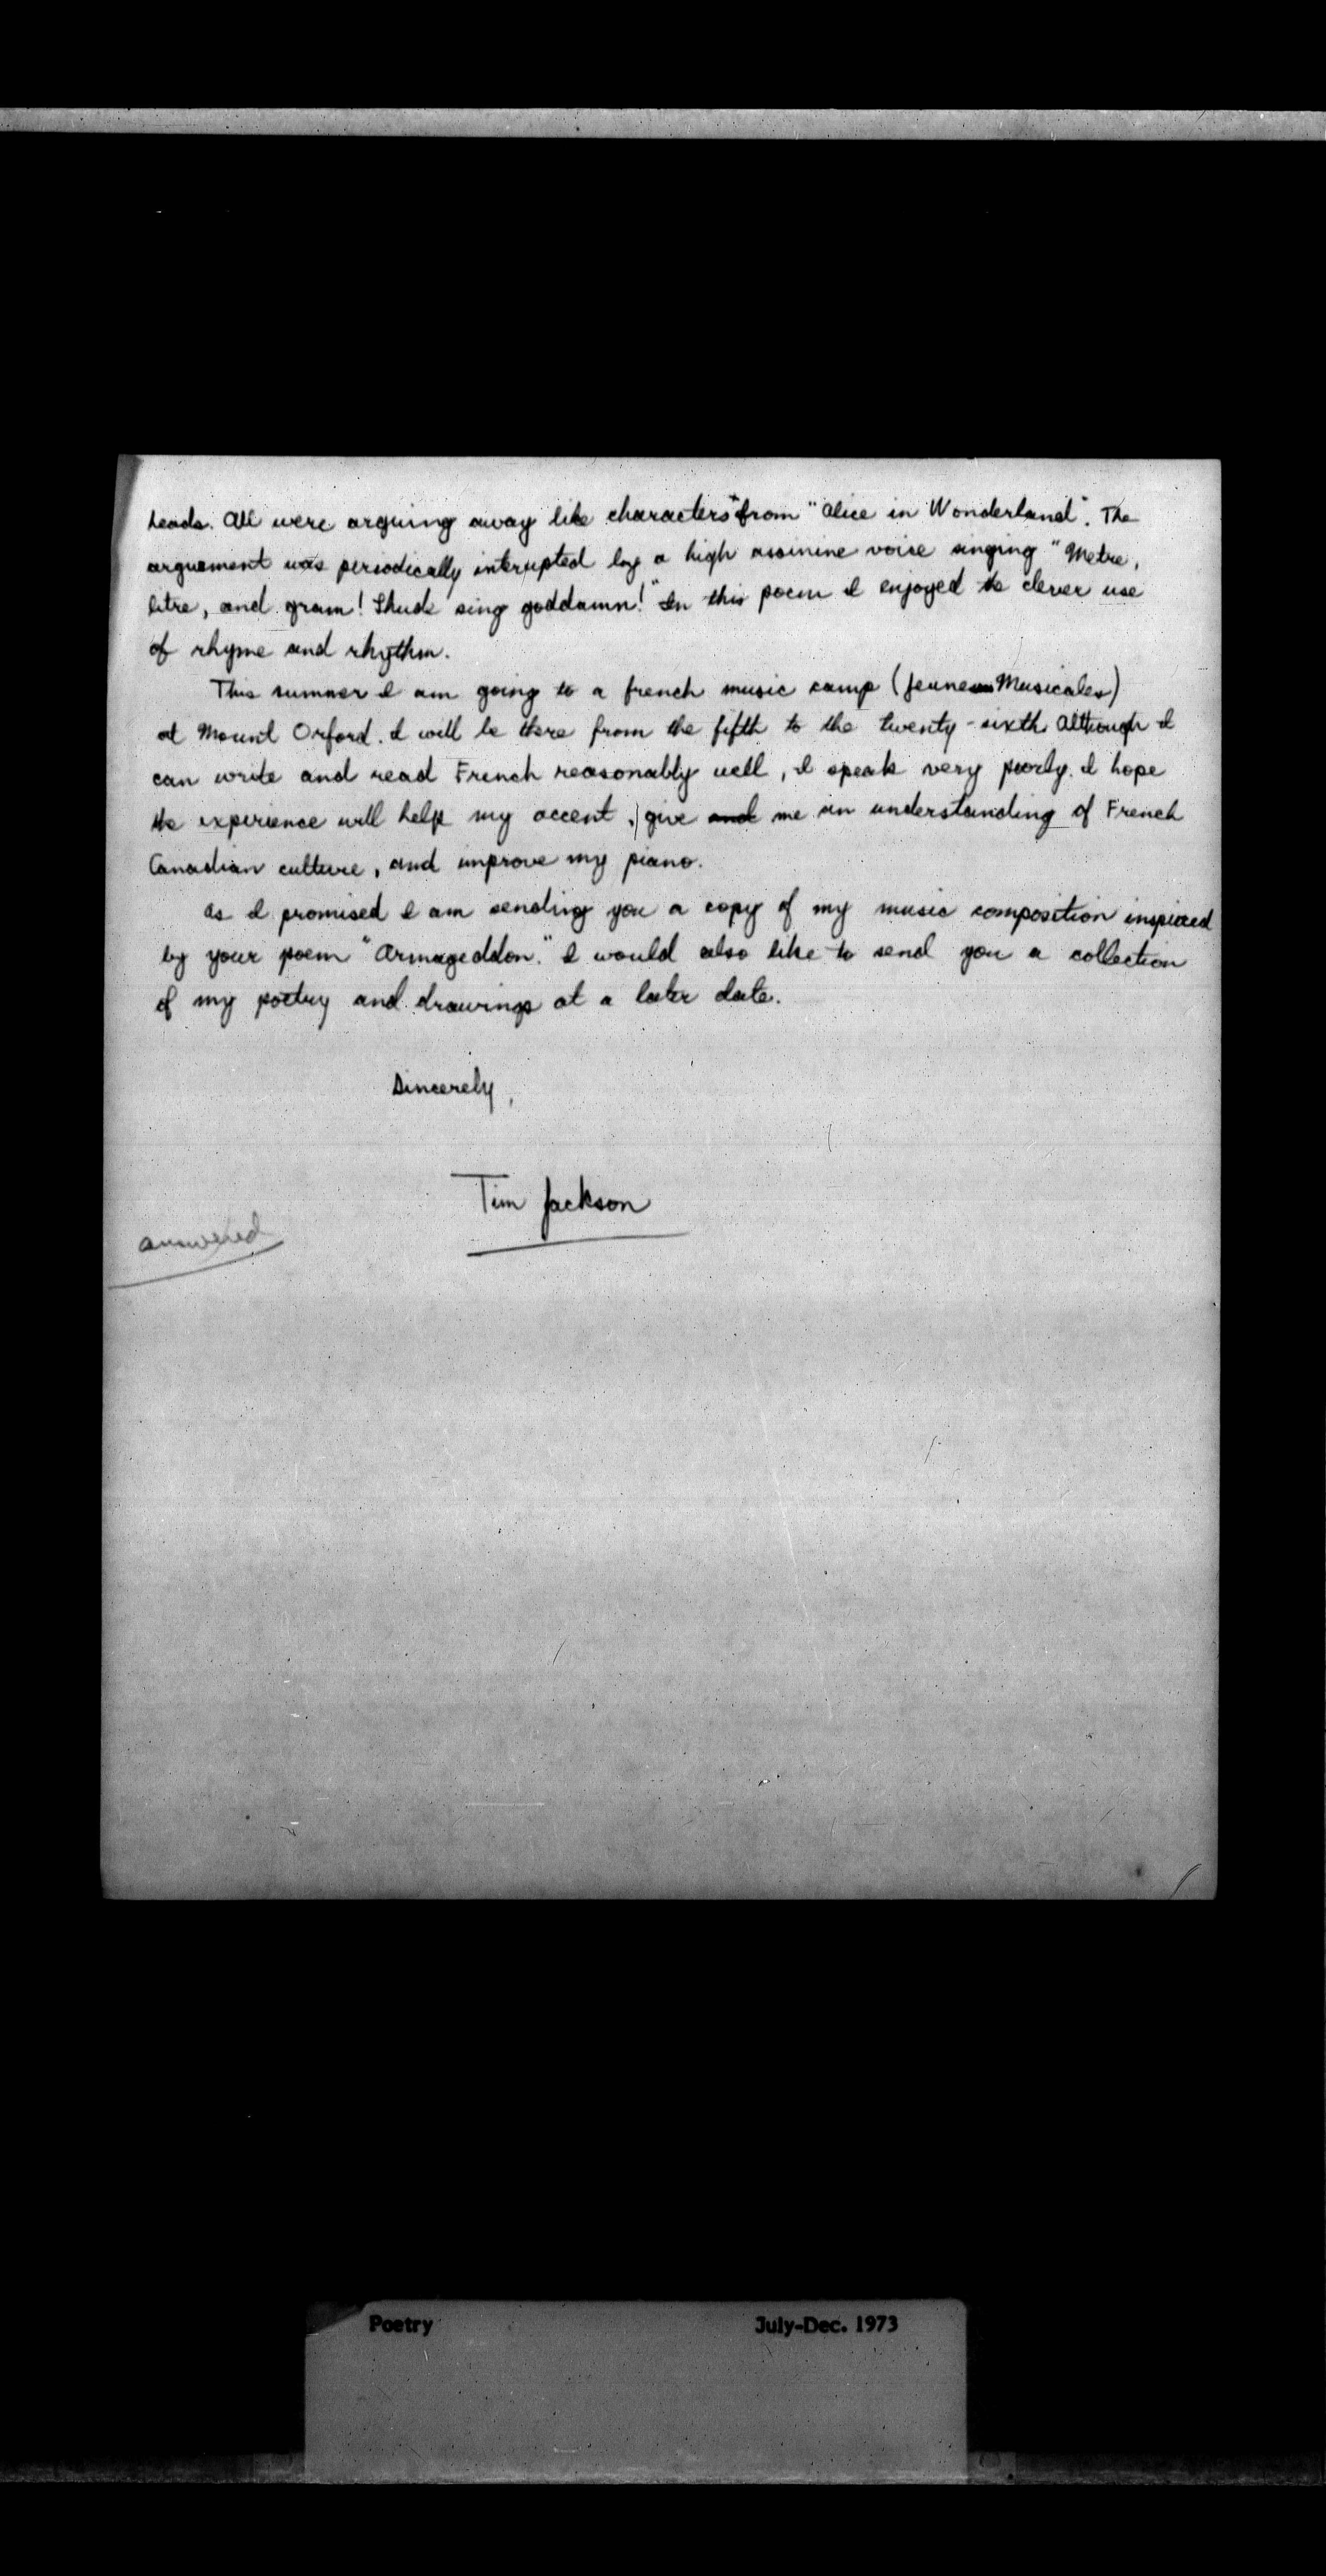 heads. All were arguing away like characters from "Alice in Wonderland". The
arguement was periodically interupted by a high assinine voice singing "Metre,
litre, and gram! Shuck sing goddamn!" In this poem I enjoyed the clever use
of rhyme and rhythm.
This summer I am going to a french music camp (Jeunes Musicales)
at Mount Orford. I will be there from the fifth to the twenty-sixth. Although I
can write and read French reasonably well, I speak very poorly. I hope
the experience will help my accent, give and me an understanding of French
Canadian culture, and improve my piano.
As I promised I am sending you a copy of my music composition inspired
by your poem "Armageddon." I would also like to send you a collection
of my poetry and drawings at a later date.
Sincerely,
Tim Jackson
answered
Poetry July-Dec. 1973